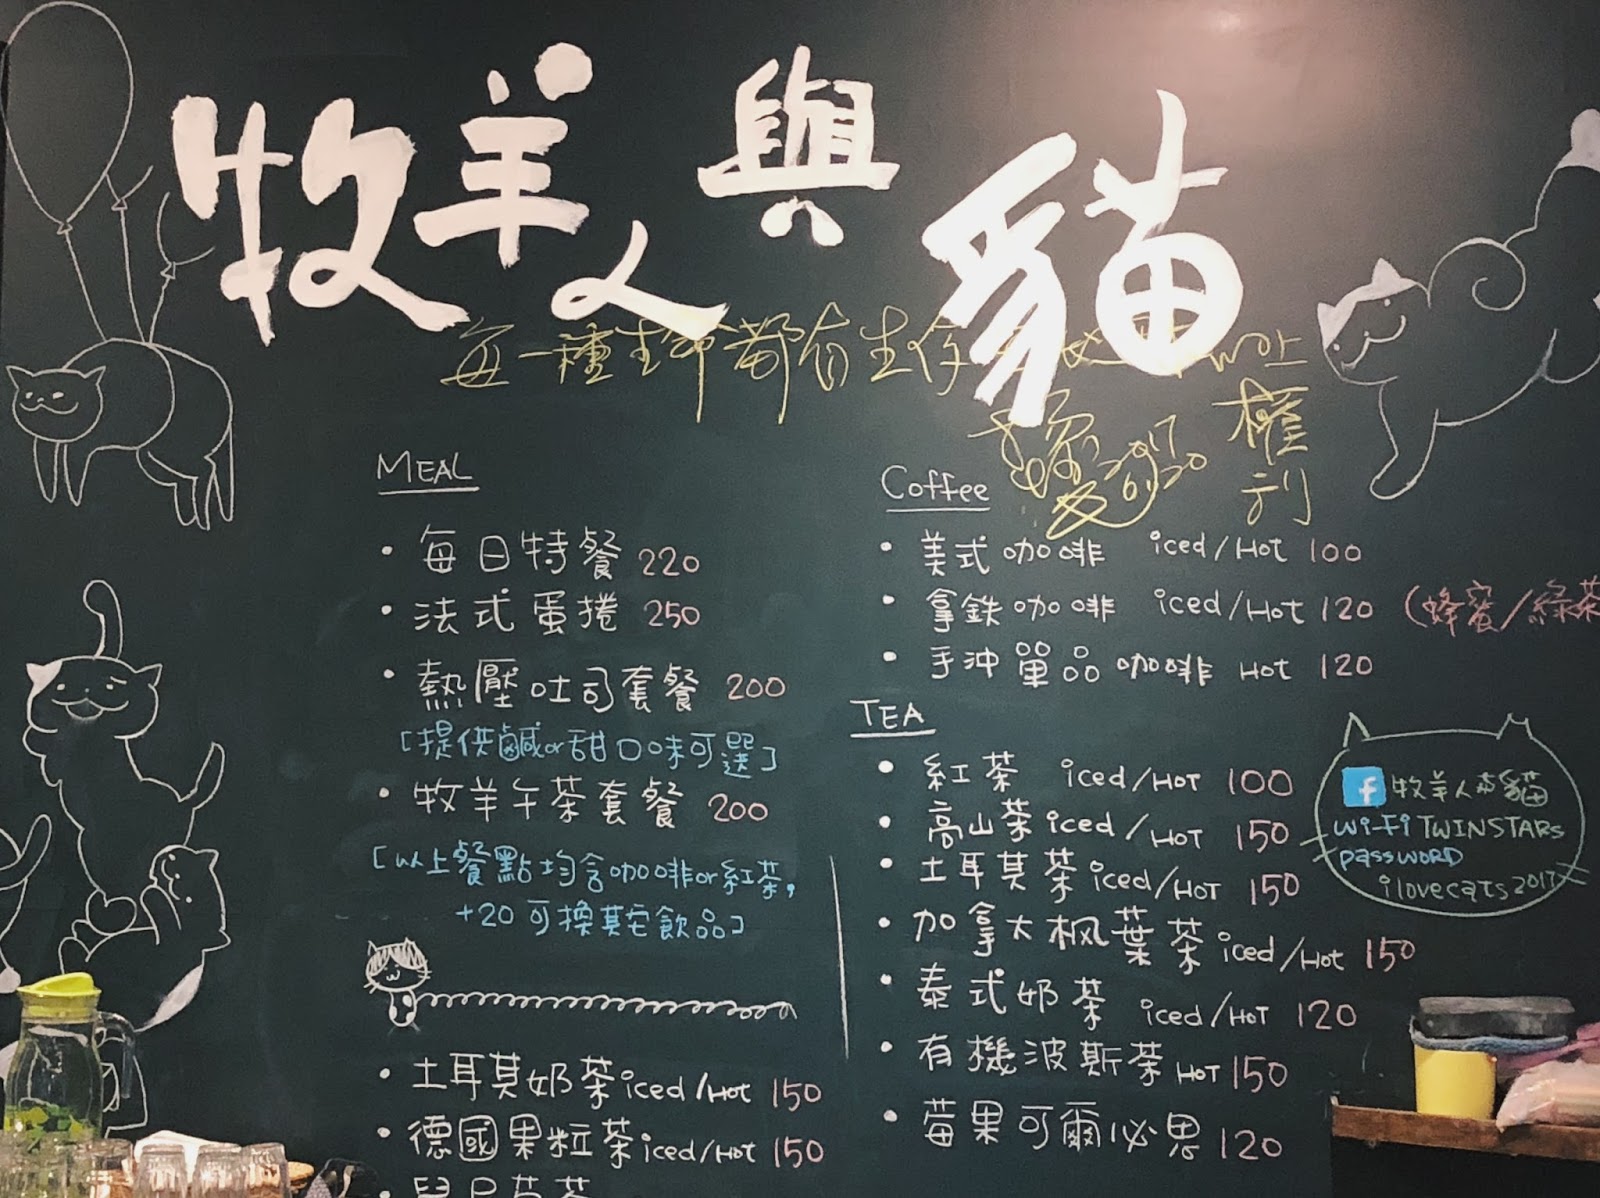 牧羊人與貓
每一種生命都有生存
權利
2017
MEAL
• 每日特餐 220
• 法式蛋捲 250
• 熱壓吐司套餐 200
[提供鹹or甜口味可選]
• 牧羊午茶套餐 200
[以上餐點均含咖啡or紅茶,
+20可換其它飲品]
• 土耳其奶茶 iced/HOT 150
• 德國果粒茶 iced/HOT 150
Coffee
• 美式咖啡 iced/HOT 100
• 拿鉄咖啡 iced/HOT 120 (蜂蜜/綠茶
• 手沖單品咖啡 HOT 120
TEA
• 紅茶 iced/HOT 100
• 高山茶 iced/HOT 150
• 土耳其茶 iced/HOT 150
• 加拿大楓葉茶 iced/HOT 150
• 泰式奶茶 iced/HOT 120
• 有機波斯茶 HOT 150
• 莓果可爾必思 120
f 牧羊人與貓
Wi-Fi TWINSTARs
PASSWORD
ilovecats2017